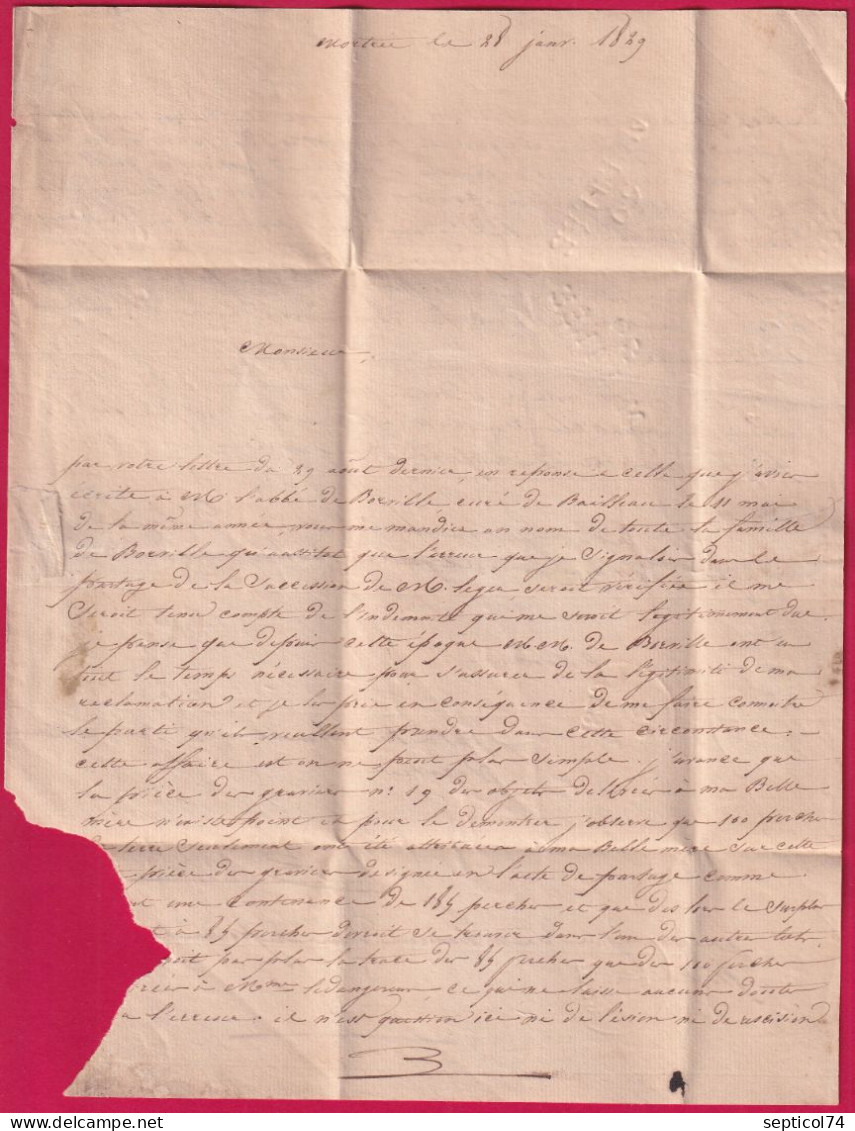 Mortrée le 28 janv. 1829
Monsieur,
par votre lettre du 29 août dernier, en réponse a celle que j'avois
écrite à Mr l'abbé de Boisville curé de Bailleau le 11 mai
de la même année, vous me mandiez au nom de toute la famille
de Boisville qu'aussitot que l'erreur que je signalois dans le
partage de la Succession de M. leger seroit vérifiée il me
Seroit tenu compte de l'indemnité qui me seroit légitimement due.
je pense que depuis cette époque MM. de Boisville ont eu
tout le temps nécessaire pour s'assurer de la légitimité de ma
réclamation et je les prie en conséquence de me faire connoitre
le parti qu'ils veuillent prendre dans cette circonstance.
cette affaire est on ne peut plus Simple. j'avance que
la pièce des graviers n.o 19 des objets délivrés à ma Belle
mère n'existe point et pour le démontrer j'observe que 100 perches
de terre Seulement ont été attribuées à ma Belle mère sur cette
pièce des graviers désignée en l'acte de partage comme
une contenance de 185 perches et que dès lors le Surplus
à 85 perches devroit Se trouver dans l'un des autres lots.
par plus la trace des 85 perches que des 100 perches
à Mme ledangereux ce qui ne laisse aucuns doutes
l'erreur. il n'est question ici ni de lésion ni de rescision
septicol74